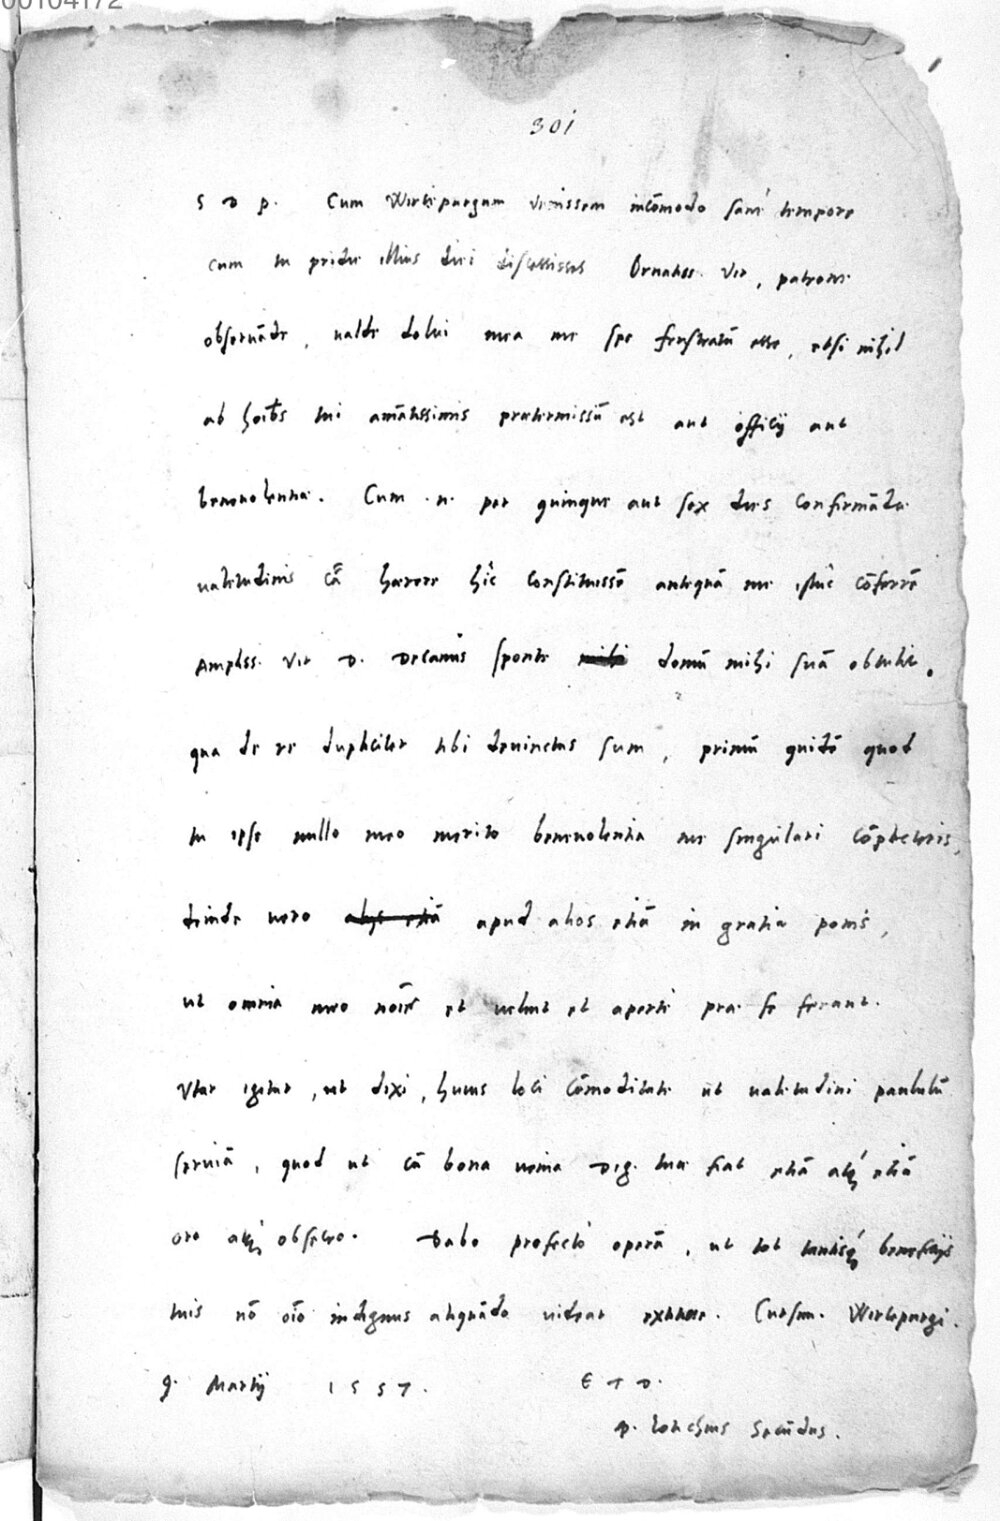 00104172
301
S D P. Cum Wirtzpurgum venissem incōmodo sanè tempore
cum tu pridie illius diei discessisses Ornatiss. Vir, patrone
obseruāde, ualde dolui mea me spe frustratū esse, etsi nihil
ab hoībs tui amātissimis prætermissū est aut officij aut
beneuolentiæ. Cum .n. per quinque aut sex dies confirmādæ
ualetudinis cā hærere hîc constituissē antequā me istuc cōferrē
Ampliss. Vir D. Decanus sponte domū mihi suā obtulit.
qua de re dupliciter tibi deuinctus sum, primū quidē quod
tu ipse nullo meo merito beneuolentia me singulari cōplecteris,
deinde uero alijs etiā apud alios etiā in gratia ponis,
ut omnia meo noīe et uelint et apertè præ se ferant.
Vtar igitur, ut dixi, huius loci cōmoditate ut ualetudini paululū
seruiā, quod ut cū bona uenia Dig. tuæ fiat etiā atq́ etiā
oro atq́ obsecro. Dabo profectò operā, ut tot tantisq́ beneficijs
tuis nō oīo indignus aliquādo uidear extitisse. Cursim. Wirtzpurgi.
9. Martij 1557. E T D.
P. Lotichius Secūdus.